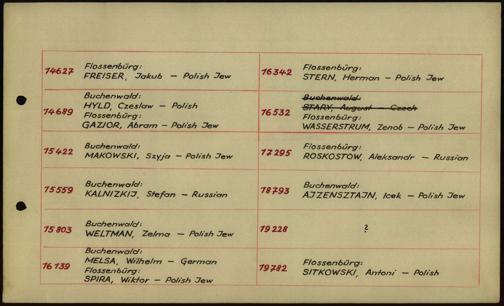 14627
Flossenbürg:
FREISER, Jakub — Polish Jew
14689
Buchenwald:
HYLD, Czeslaw — Polish
Flossenbürg:
GAZIOR, Abram — Polish Jew
15422
Buchenwald:
MAKOWSKI, Szyja — Polish Jew
15559
Buchenwald:
KALNIZKIJ, Stefan — Russian
15803
Buchenwald:
WELTMAN, Zelma — Polish Jew
16139
Buchenwald:
MELSA, Wilhelm — German
Flossenbürg:
SPIRA, Wiktor — Polish Jew
16342
Flossenbürg:
STERN, Herman — Polish Jew
16532
Buchenwald:
STARY, August — Czech
Flossenbürg:
WASSERSTRUM, Zenob — Polish Jew
17295
Flossenbürg:
ROSKOSTOW, Aleksandr — Russian
18793
Buchenwald:
AJZENSZTAJN, Icek — Polish Jew
19228
?
19782
Flossenbürg:
SITKOWSKI, Antoni — Polish